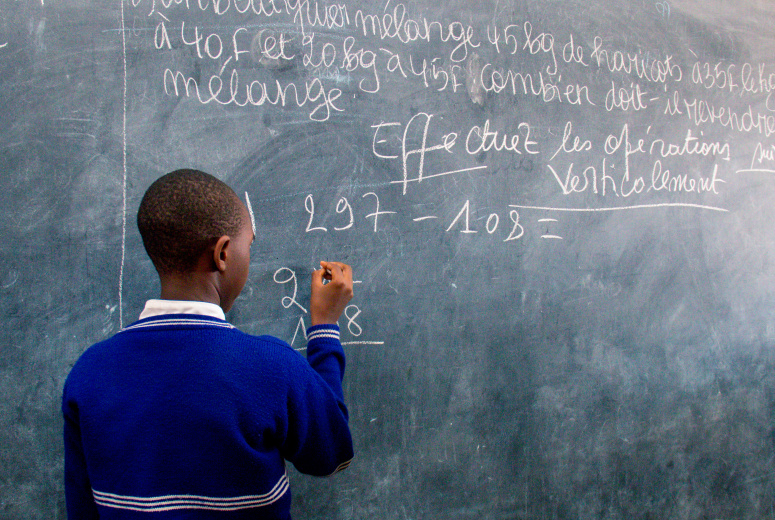 mélange 45kg de haricots à 35F le kg
à 40F et 20kg à 45F. Combien doit-il revendre
mélange.
Effectuez les opérations
verticalement
297 - 108 =
2
1 8